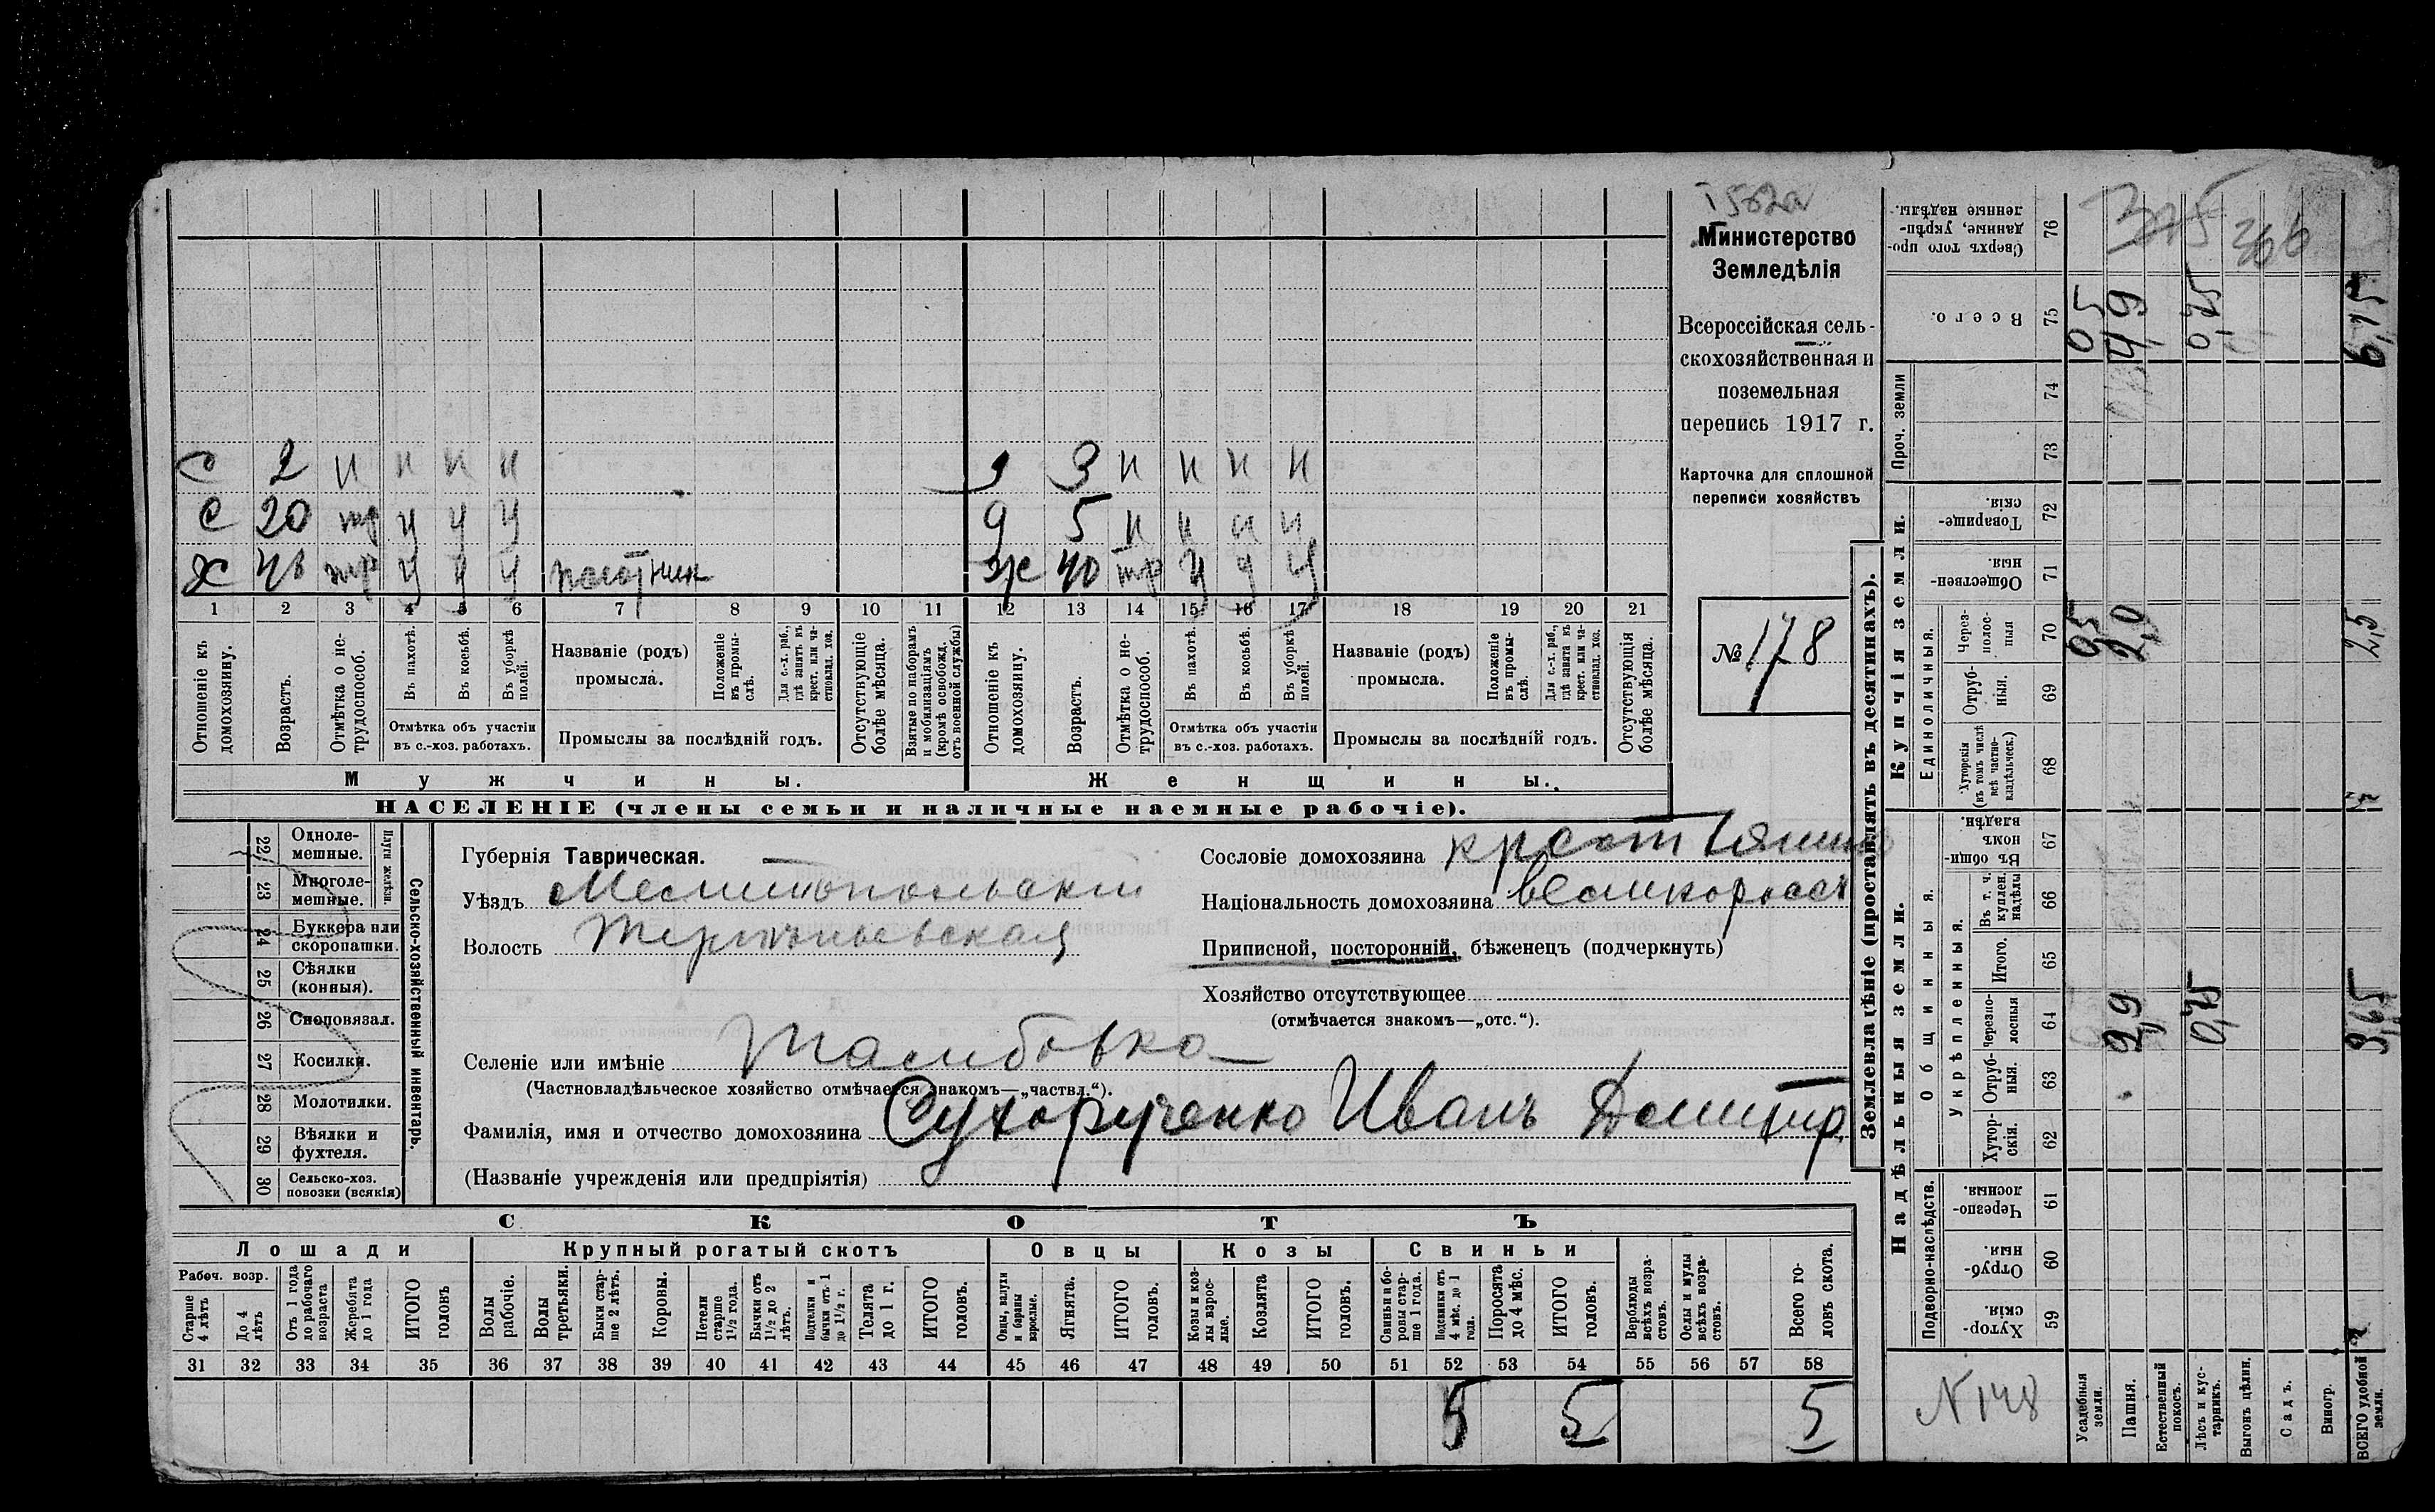 Министерство
Земледѣлія
Всероссійская сель-
скохозяйственная и
поземельная
перепись 1917 г.
Карточка для сплошной
переписи хозяйствъ
№ 178
С 2 н н н н
С 20 тр у у у
Х тр у у у
3 н н н н
д 5 н н н н
ж 40 тр у у у
1 2 3 4 5 6 7 8 9 10 11 12 13 14 15 16 17 18 19 20 21
Отношеніе къ домохозяину.
Возрастъ.
Отмѣтка о не-трудоспособ.
Въ пахотѣ.
Въ косьбѣ.
Въ уборкѣ полей.
Отмѣтка объ участіи въ с.-хоз. работахъ.
Названіе (родъ) промысла.
Положеніе въ промы-слѣ.
Для с.-х. раб., гдѣ занятъ въ крест. или ча-стновлад. хоз.
Промыслы за послѣдній годъ.
Отсутствующіе болѣе мѣсяца.
Взятые по наборамъ и мобилизаціямъ (кромѣ освобожд. отъ военной службы)
Отношеніе къ домохозяину.
Возрастъ.
Отмѣтка о не-трудоспособ.
Въ пахотѣ.
Въ косьбѣ.
Въ уборкѣ полей.
Отмѣтка объ участіи въ с.-хоз. работахъ.
Названіе (родъ) промысла.
Положеніе въ промы-слѣ.
Для с.-х. раб., гдѣ занята въ крест. или ча-стновлад. хоз.
Промыслы за послѣдній годъ.
Отсутствующія болѣе мѣсяца.
Мужчины. Женщины.
НАСЕЛЕНІЕ (члены семьи и наличные наемные рабочіе).
Сельско-хозяйственный инвентарь.
Плуги желѣзн.
22 Одноле-мешные.
23 Многоле-мешные.
24 Буккера или скоропашки.
25 Сѣялки (конныя).
26 Сноповязал.
27 Косилки.
28 Молотилки.
29 Вѣялки и фухтеля.
30 Сельско-хоз. повозки (всякія)
Губернія Таврическая.
Уѣздъ Мелитопольскій
Волость
Сословіе домохозяина крестьянинъ
Національность домохозяина великороссъ
Приписной, посторонній, бѣженецъ (подчеркнуть)
Хозяйство отсутствующее
(отмѣчается знакомъ—„отс.“).
Селеніе или имѣніе
(Частновладѣльческое хозяйство отмѣчается знакомъ—„частвл.“).
Фамилія, имя и отчество домохозяина Сухорученко Иванъ Дмитр.
(Названіе учрежденія или предпріятія)
СКОТЪ
Лошади Крупный рогатый скотъ Овцы Козы Свиньи
Рабоч. возр.
Старше 4 лѣтъ
До 4 лѣтъ
Отъ 1 года до рабочаго возраста
Жеребята до 1 года
ИТОГО головъ
Волы рабочіе.
Волы третьяки.
Быки стар-ше 2 лѣтъ.
Коровы.
Нетели старше 1½ года.
Бычки отъ 1½ до 2 лѣтъ.
Подтелки и бычки отъ 1 до 1½ г.
Телята до 1 г.
ИТОГО головъ.
Овцы, валухи и бараны взрослые.
Ягнята.
ИТОГО головъ.
Козы и коз-лы взрос-лые.
Козлята
ИТОГО головъ.
Свиньи и бо-ровы стар-ше 1 года.
Подсвинки отъ 4 мѣс. до 1 года.
Поросята до 4 мѣс.
ИТОГО головъ.
Верблюды всѣхъ возра-стовъ.
Ослы и мулы всѣхъ возра-стовъ.
Всего го-ловъ скота.
31 32 33 34 35 36 37 38 39 40 41 42 43 44 45 46 47 48 49 50 51 52 53 54 55 56 57 58
5 5 5
Землевладѣніе (проставлять въ десятинахъ).
Надѣльныя земли. Купчія земли.
Подворно-наслѣдств.
Общинныя.
Укрѣпленныя.
Единоличныя.
Проч. земли
59 Хутор-скія.
60 Отруб-ныя.
61 Черезпо-лосныя.
62 Хутор-скія.
63 Отруб-ныя.
64 Черезпо-лосныя
65 Итого.
66 Въ т. ч. куплен. надѣлы
67 Въ общи-номъ владѣн.
68 Хуторскія (въ томъ числѣ всѣ частно-владѣльческ.)
69 Отруб-ныя.
70 Через-полос-ныя
71 Обществен-ныя.
72 Товарище-скія.
73
74
75 Всего.
76 Сверхъ того про-данные, укрѣп-ленные надѣлы.
Усадебныя земли. 0,5 0 5
Пашня. 2,9 2,0 4,9
Естественный покосъ.
Лѣсъ и кус-тарникъ. 0,75 0,75
Выгонъ цѣлин.
Садъ.
Виногр.
ВСЕГО удобной земли. 3,65 2,5 6,15
375
366
N 148